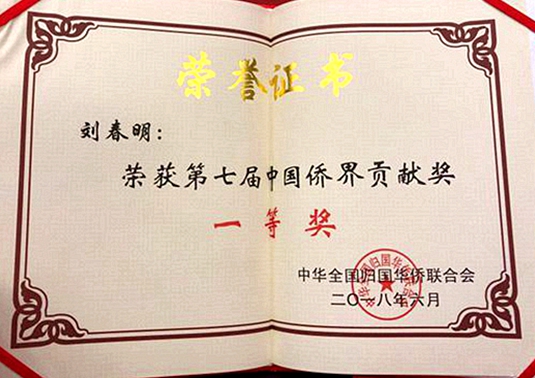 荣誉证书
刘春明：
荣获第七届中国侨界贡献奖
一等奖
中华全国归国华侨联合会
二〇一八年六月